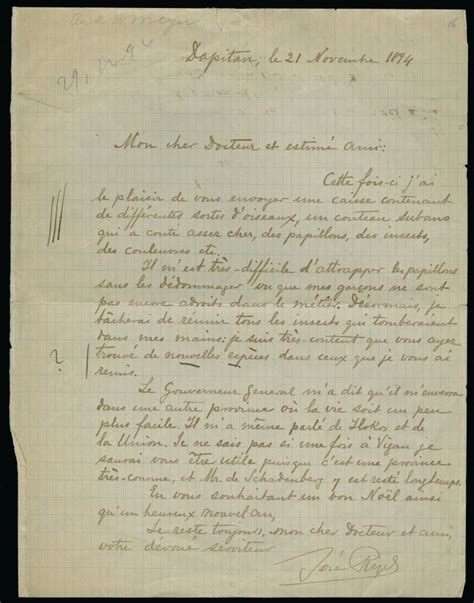 16
29, 12. 94
Dapitan, le 21 Novembre 1894
Mon cher Docteur et estimé ami:
Cette fois-ci j'ai
le plaisir de vous envoyer une caisse contenant
de différentes sortes d'oiseaux, un couteau subano
qui a couté assez cher, des papillons, des insects,
des couleuvres etc.
Il m'est très-difficile d'attrapper les papillons
sans les dédommager vu que mes garçons ne sont
pas encore adroits dans le métier. Désormais, je
tâcherai de réunir tous les insects qui tomberaient
dans mes mains: je suis très-content que vous ayez
trouvé de nouvelles espèces dans ceux que je vous ai
remis.
?
Le Gouverneur General m'a dit qu'il m'enverra
dans une autre province où la vie soit un peu
plus facile. Il m'a même parlé de Ilokos et de
la Union. Je ne sais pas si une fois à Vigan je
saurai vous être utile puisque c'est une province
très-connue, et Mr. de Schadenberg y est resté longtemps.
En vous souhaitant un bon Noël ainsi
qu'un heureux nouvel an,
Je reste toujours, mon cher Docteur et ami,
votre dévoué serviteur
José Rizal